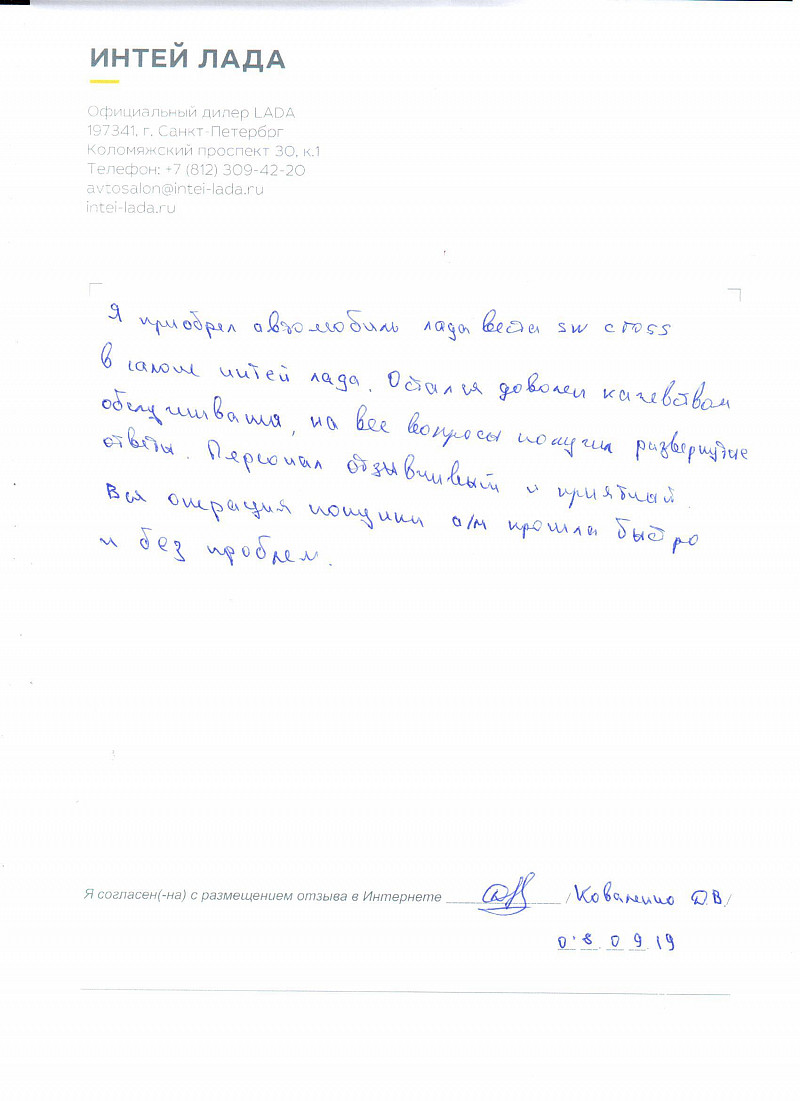 ИНТЕЙ ЛАДА
Официальный дилер LADA
197341, г. Санкт-Петербург
Коломяжский проспект 30, к.1
Телефон: +7 (812) 309-42-20
avtosalon@intei-lada.ru
intei-lada.ru
Я приобрел автомобиль лада веста sw cross
в салоне интей лада. Остался доволен качевством
обслуживания, на все вопросы получил развернутые
ответы. Персонал отзывчивый и приятный.
Вся операция покупки а/м прошла быстро
и без проблем.
Я согласен(-на) с размещением отзыва в Интернете / Коваленко Д.В./
08.09.19